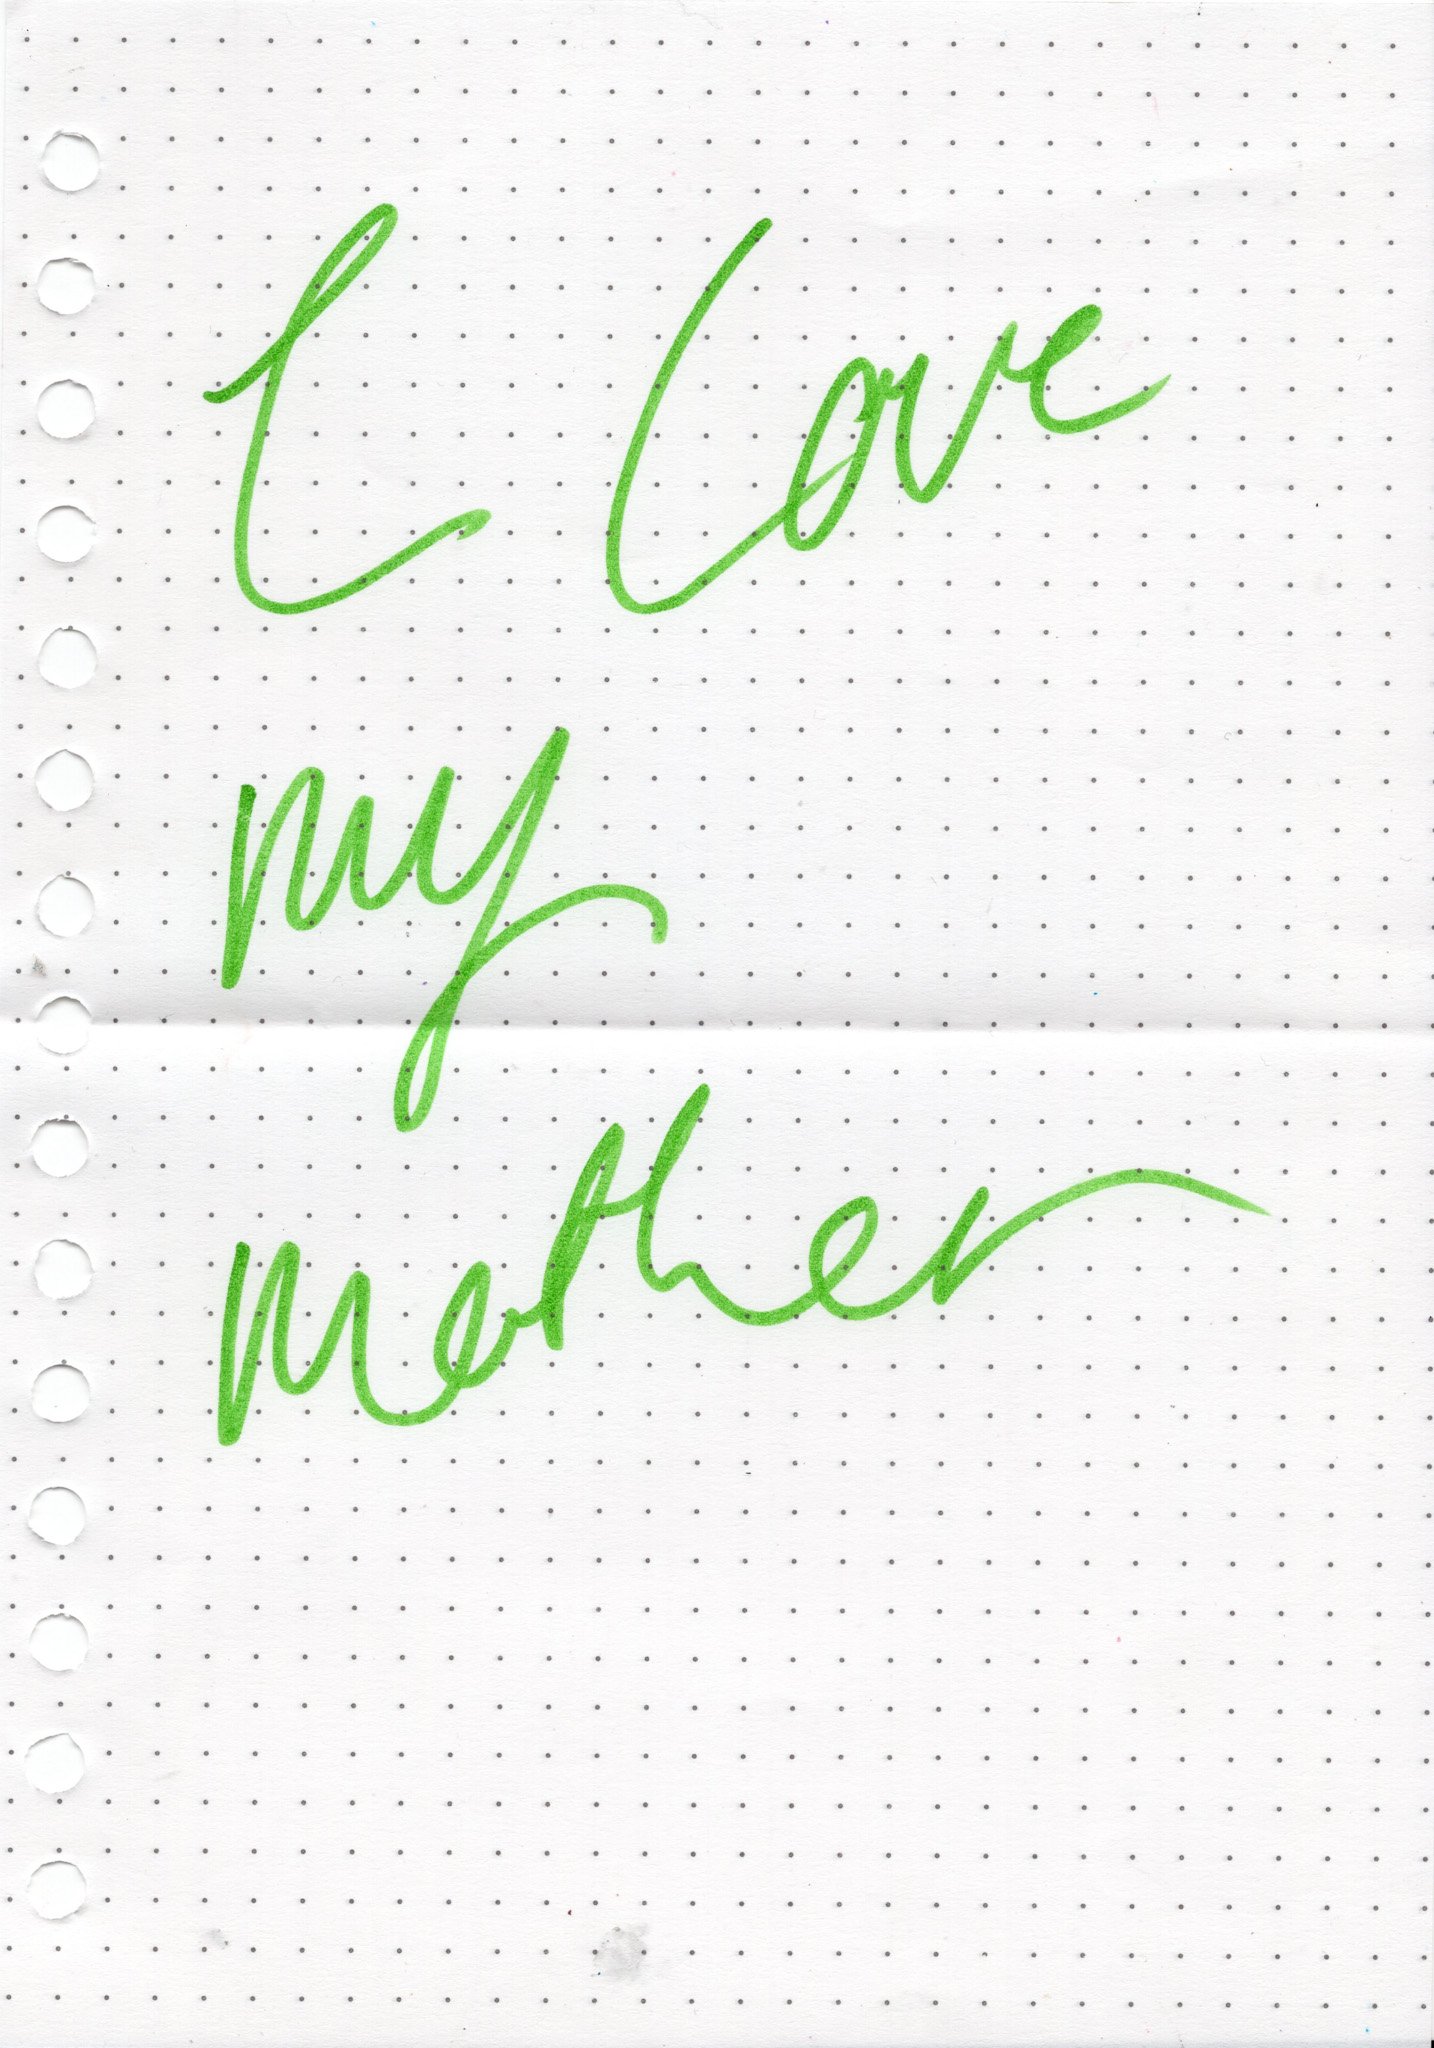 I Love
my
mother